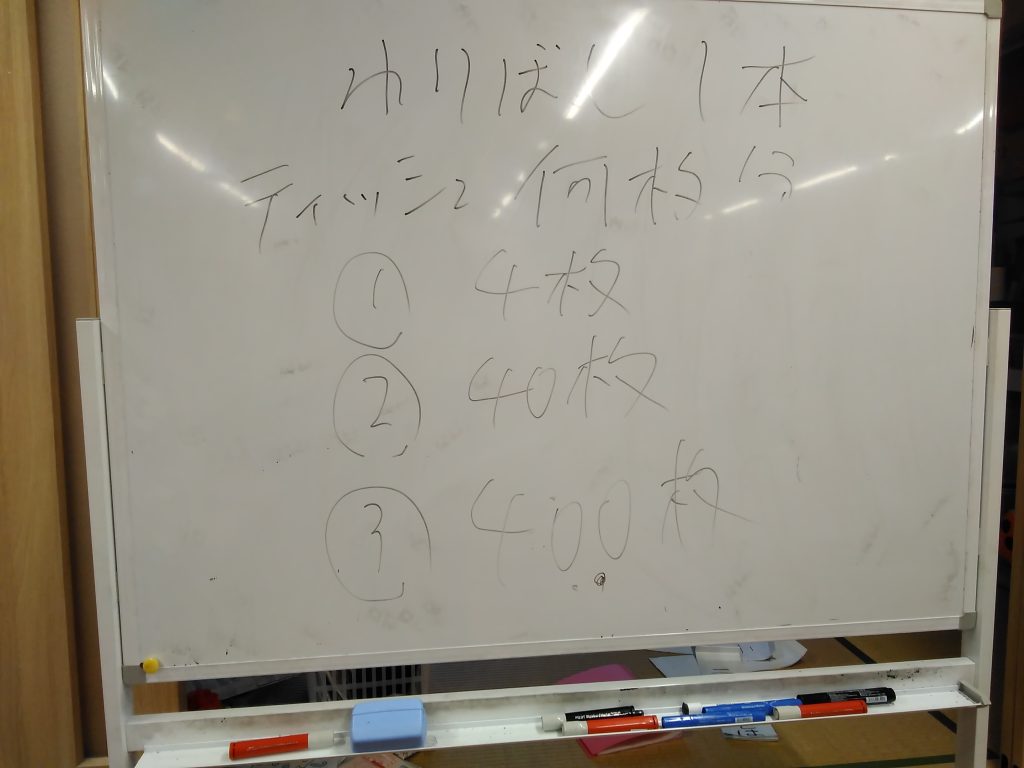 わりばし 1本
ティッシュ 何枚分
① 4枚
② 40枚
③ 400枚